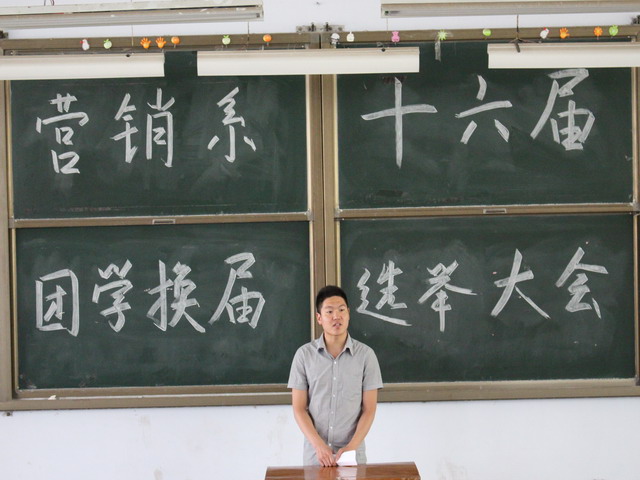 营销系 十六届
团学换届 选举大会